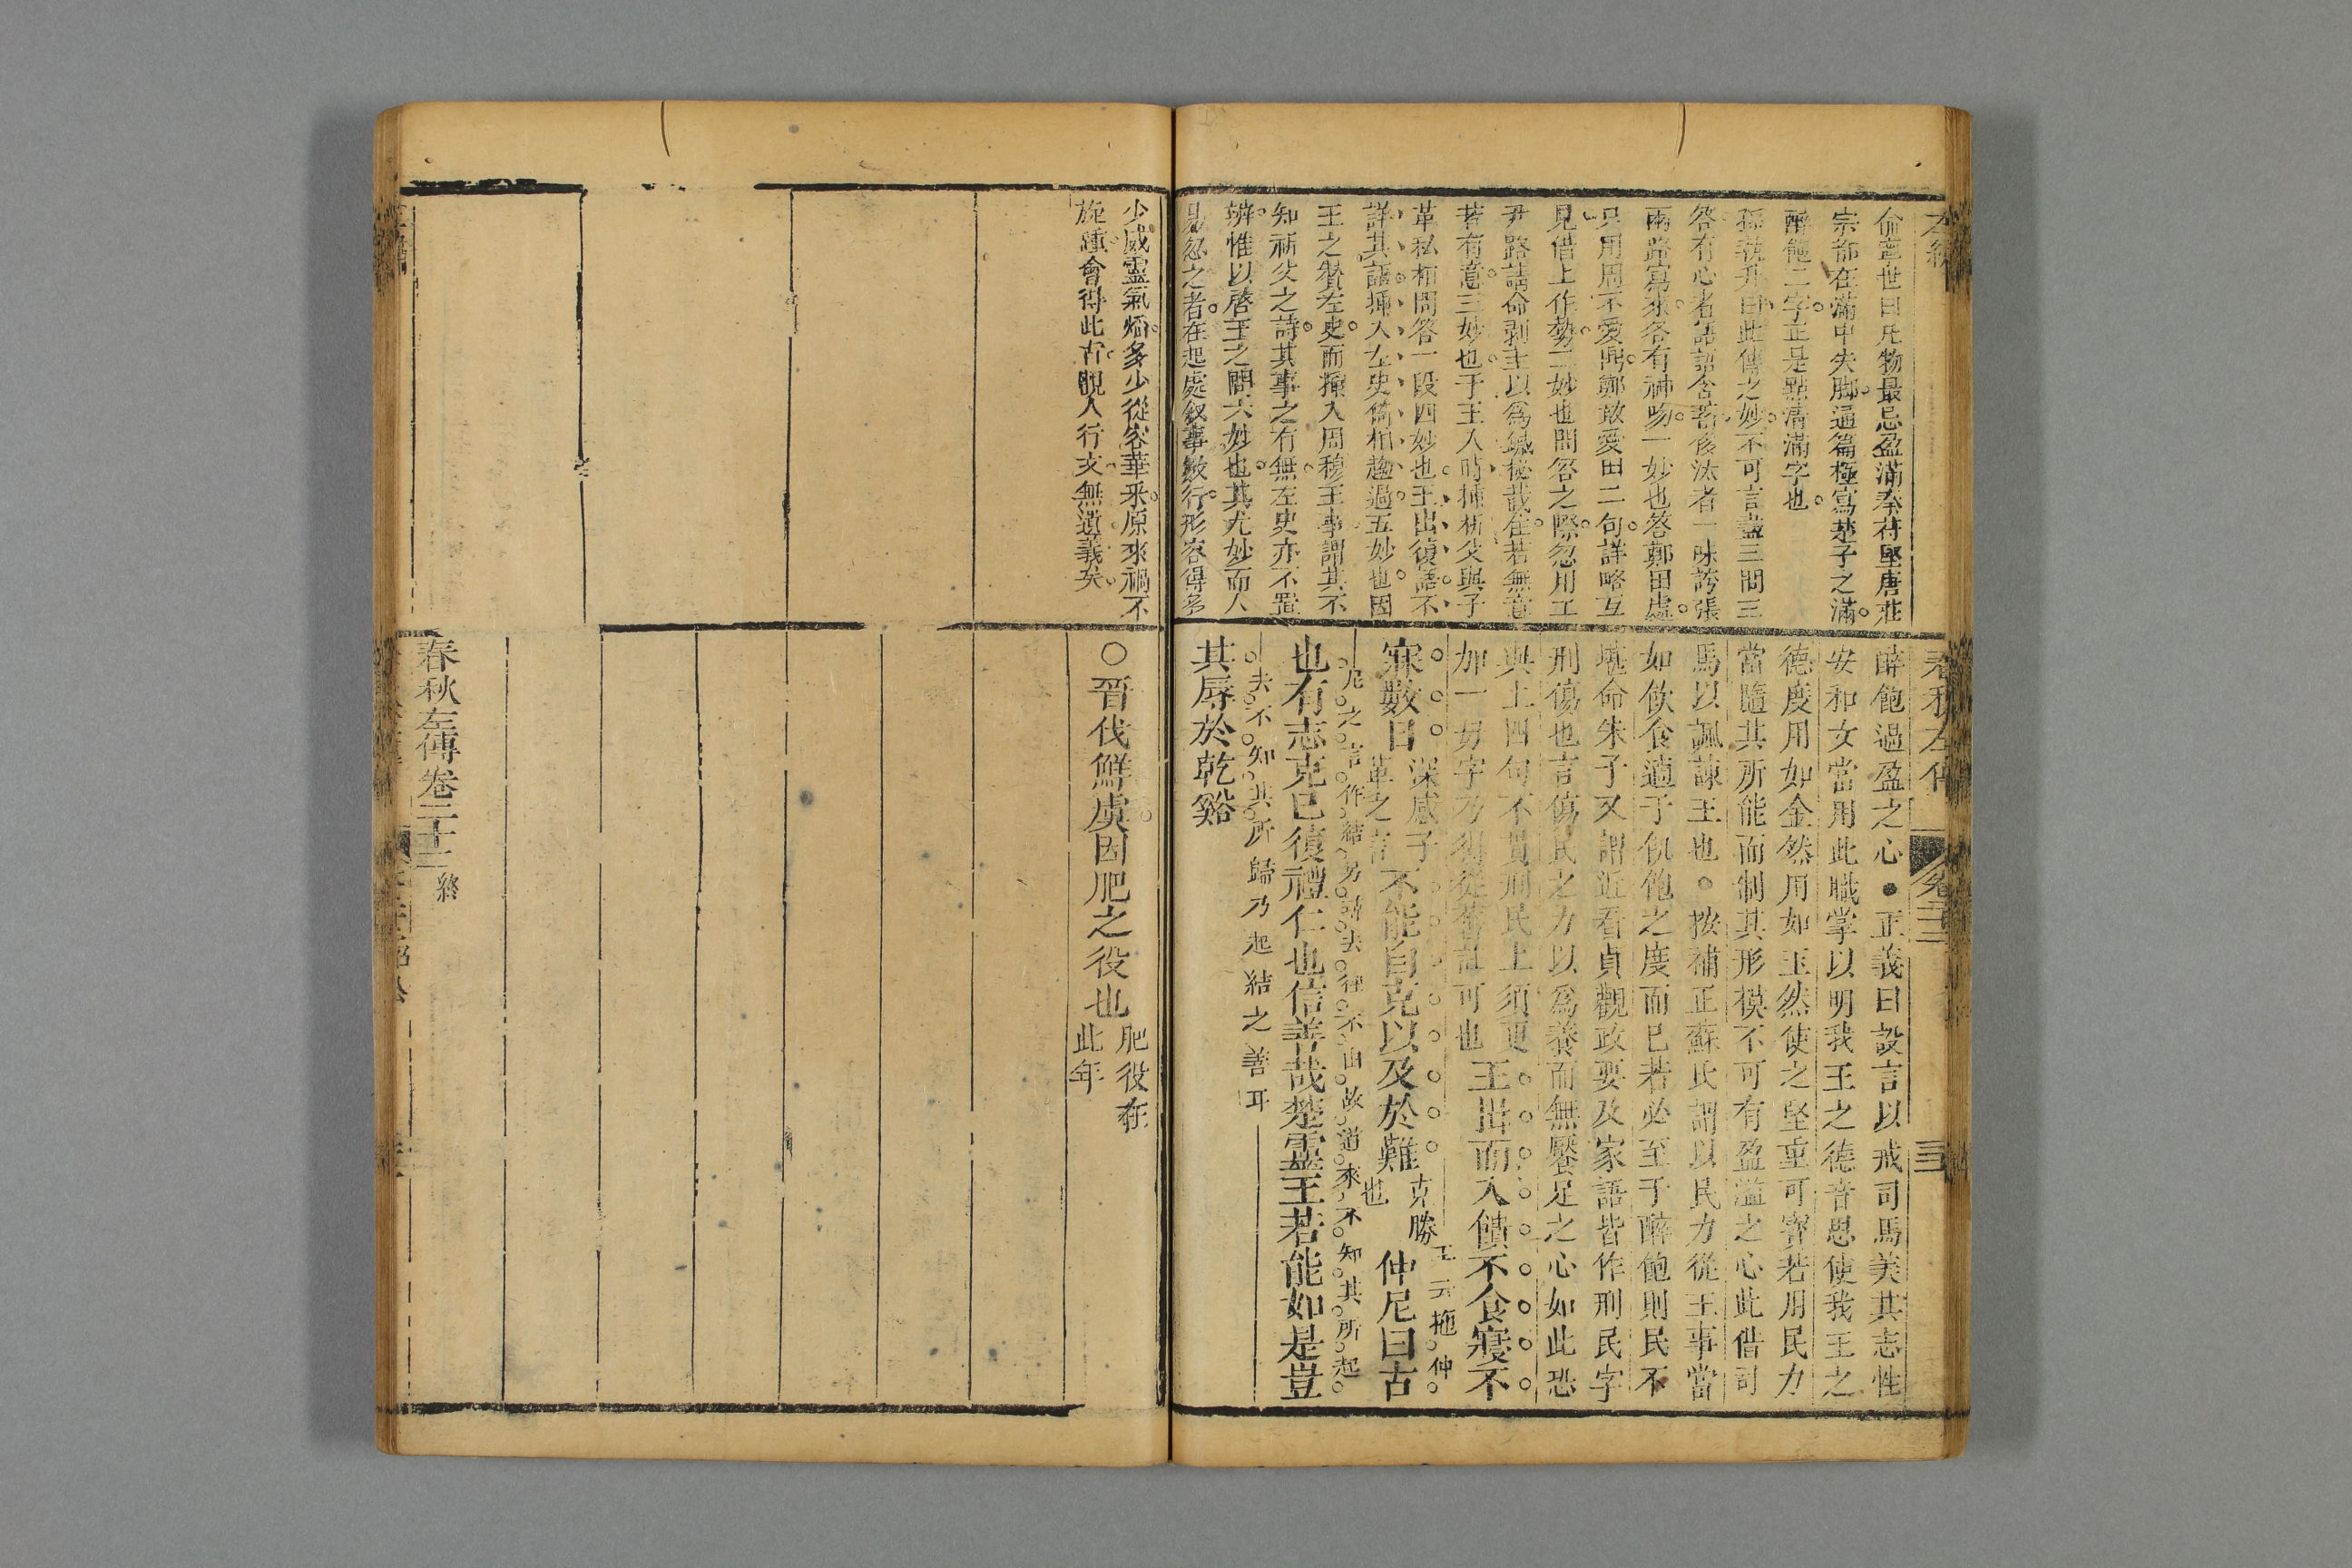 俞寧世曰凡物最忌盈滿秦苻堅唐莊
宗都在滿中失脚通篇極寫楚子之滿
醉飽二字正是點滿滿字也
孫執升曰此傳之妙不可言盡三問三
答有心者語語含譏侈汰者一味誇張
兩路寫來各有神吻一妙也答鄭田處
只用周不愛鼎鄭敢愛田二句詳略互
見借上作勢二妙也問答之際忽用工
尹路請命剥圭以為鏚柲哉住若無意
若有意三妙也于王入時揷析父與子
革私相問答一段四妙也王出復語不
詳其語揷入左史倚相趨過五妙也因
王之贊左史而揷入周穆王事謂其不
知祈父之詩其事之有無左史亦不置
辨惟以啓王之問六妙也其尤妙而人
易忽之者在起處叙事數行形容得多
春秋左傳
卷二十二
醉飽過盈之心●正義曰設言以戒司馬美其志性
安和女當用此職掌以明我王之德音思使我王之
德度用如金然用如玉然使之堅重可寶若用民力
當隨其所能而制其形模不可有盈溢之心此借司
馬以諷諫王也●按補正蘇氏謂以民力從王事當
如飲食適于飢飽之度而已若必至于醉飽則民不
堪命朱子又謂近看貞觀政要及家語皆作刑民字
刑傷也言傷民之力以爲養而無饜足之心如此恐
與上四句不貫刑民上須更
加一毋字乃得從舊註可也
王揖而入饋不食寢不
寐數日
深感子
革之言
不能自克以及於難
克勝
也
仲尼曰古
王云拖仲
尼之言作結另詩去徑不由故道來不知其所起
也有志克已復禮仁也信善哉楚靈王若能如是豈
去不知其所歸乃起結之善耳
其辱於乾谿
少威靈氣焰多少從容華釆原來禍不
旋踵會得此古覩人行文無遺義矣
○晉伐鮮虞因肥之役也
肥役在
此年
春秋左傳卷二十二
終